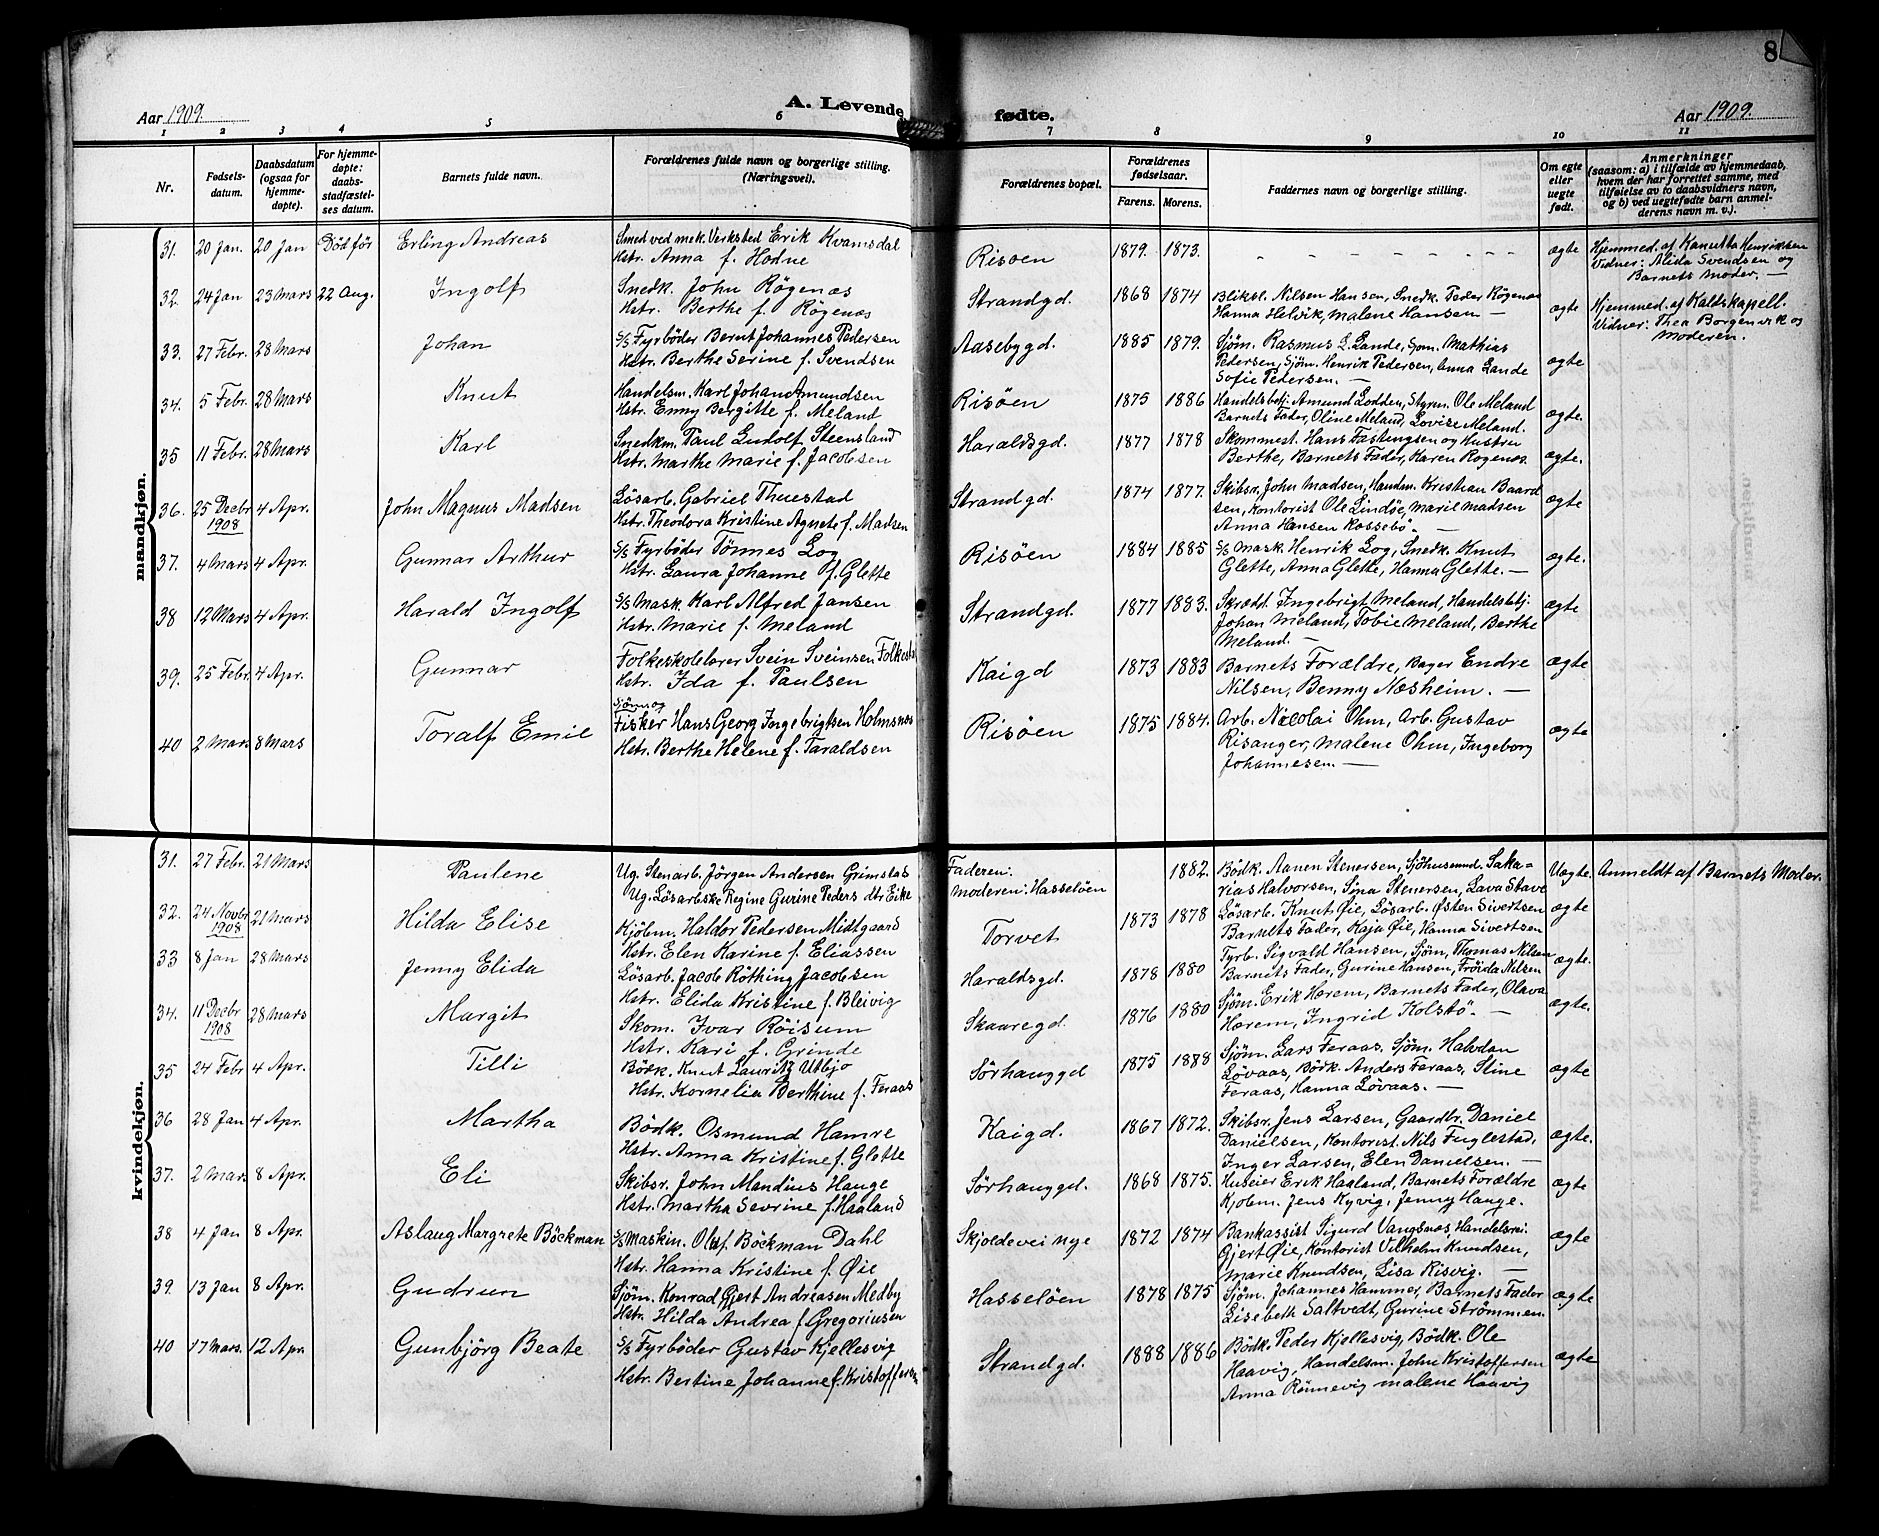 8
Aar 1909.
A. Levende
fødte.
Aar 1909.
1 2 3 4 5 6 7 8 9 10 11
Nr.
Fødsels-
datum.
Daabsdatum
(ogsaa for
hjemme-
døpte).
For hjemme-
døpte:
daabs-
stadfæstel-
ses datum.
Barnets fulde navn.
Forældrenes fulde navn og borgerlige stilling.
(Næringsvei).
Forældrenes bopæl.
Forældrenes
fødselsaar.
Farens. Morens.
Faddernes navn og borgerlige stilling.
Om egte
eller
uegte
født.
Anmerkninger
(saasom: a) i tilfælde av hjemmedaab,
hvem der har forrettet samme, med
tilføielse av to daabsvidners navn,
og b) ved uegtefødte barn anmel-
derens navn m. v.).
mandkjøn.
31. 20 Jan. 20 Jan Död för Erling Andreas
Smed ved mek. Verksted Erik Kvamsdal
Hstr. Anna f. Hodne
Risöen 1879. 1873. ægte
Hjemmed. af Kanutta Henriksen
Vidner: Alida Svendsen og
Barnets Moder. —
32. 24 Jan 23 Mars 22 Aug. Ingolf
Snedk. John Rögenæs
Hstr. Berthe f. Rögenæs
Strandgd. 1868 1874
Bliksl. Nilsen Hansen, Snedk. Peder Rögenæs
Hanna Helvik, Malene Hansen —
ægte
Hjemmed. af Kaldskapell.
Vidner: Thea Borgenvik og
Moderen.
33. 27 Febr. 28 Mars Johan
S/S Fyrböder Bernt Johannes Pedersen
Hstr. Berthe Serine f. Svendsen
Aasebygd. 1885 1879.
Sjöm. Rasmus L. Lande, Sjöm. Mathias
Pedersen, Sjöm. Henrik Pedersen, Anna Lande
Sofie Pedersen. —
ægte
34. 5 Febr. 28 Mars Knut
Handelsm. Karl Johan Amundsen
Hstr. Enny Bergitte f. Meland
Risöen 1875 1886
Handelsbetj. Amund Lodden, Styrm. Ole Meland
Barnets Fader, Oline Meland, Lovise Meland.
ægte.
35 11 Febr. 28 Mars Karl
Snedkm. Paul Ludolf Steensland
Hstr. Marthe Marie f. Jacobsen
Haraldsgd. 1877 1878
Skommest. Hans Fastingsen og Hustru
Berthe, Barnets Fader, Karen Rogenæs.
ægte.
36. 25 Decbr 1908 4 Apr. John Magnus Madsen
Lösarb. Gabriel Thuestad
Hstr. Theodora Kristine Agnete f. Madsen
Strandgd. 1874 1877.
Skibsr. John Madsen, Handm. Kristian Baard
sen, Kontorist Ole Lindöe, Marie Madsen
Anna Hansen Rossebö. —
ægte
37. 4 Mars 4 Apr. Gunnar Arthur
S/S Fyrböder Tönnes Log
Hstr. Laura Johanne f. Glette
Risöen 1884 1885
S/S Mask. Henrik Log, Snedk. Knut
Glette, Anna Glette, Hanna Glette. —
ægte.
38 12 Mars 4 Apr. Harald Ingolf
S/S Mask. Karl Alfred Jansen
Hstr. Marie f. Meland
Strandgd. 1877 1883.
Skrædd. Ingebrigt Meland, Handelsbetj.
Johan Meland, Tobie Meland, Berthe
Meland. —
ægte
39. 25 Febr 4 Apr. Gunnar
Folkeskolelærer Svein Sveinsen Folkestad
Hstr. Ida f. Paulsen
Kaigd 1873 1883
Barnets Forældre, Bager Endre
Nilsen, Benny Næsheim. —
ægte
40 2 Mars 8 Mars Toralf Emil
Sjöm og
Fisker Hans Georg Ingebrigtsen Holmsnæs
Hstr. Berthe Helene f. Taraldsen
Risöen 1875 1884.
Arb. Nicolai Ohm, Arb. Gustav
Risanger, Malene Ohm, Ingeborg
Johannesen. —
ægte
kvindekjøn.
31. 27 Febr. 21 Mars Paulene
Ug. Stenarb. Jörgen Andersen Grimstad
Ug. Lösarbske Regine Gurine Peders dtr Eike
Faderen:
Moderen: Hasselöen
1882.
Bödk. Aanen Stenersen, Sjöhusmnd. Saka-
rias Halvorsen, Sina Stenersen, Lava Stave
Uægte. Anmeldt af Barnets Moder.
32. 24 Novbr 1908 21 Mars Hilda Elise
Kjöbm. Haldor Pedersen Midtgaard
Hstr. Elen Karine f. Eliassen
Torvet 1873 1878
Lösarb. Knut Öie, Lösarb. Østen Sivertsen
Barnets Fader, Kaja Öie, Hanna Sivertsen
ægte
33 8 Jan 28 Mars Jenny Elida
Lösarb. Jacob Röthing Jacobsen
Hstr. Elida Kristine f. Bleivig
Haraldsgd. 1878 1880
Fyrb. Sigvald Hansen, Sjöm. Thomas Nilsen
Barnets Fader, Gurine Hansen, Fröida Nilsen
ægte.
34. 11 Decbr 1908 28 Mars Margit
Skom. Ivar Röisum
Hstr. Kari f. Grinde
Skaaregd. 1876 1880
Sjöm. Erik Hærem, Barnets Fader, Olava
Hærem, Ingrid Kolstö. —
ægte.
35 24 Febr 4 Apr. Tilli
Bödk. Knut Lauritz Utbjo
Hstr. Kornelia Berthine f. Feraas
Sörhauggd 1875 1888
Sjöm. Lars Feraas, Sjöm. Halvdan
Lövaas, Bödk. Anders Feraas, Stine
Feraas, Hanna Lövaas. —
ægte
36 28 Jan 4 Apr. Martha
Bödk. Osmund Hamre
Hstr. Anna Kristine f. Glette
Kaigd. 1867 1872.
Skibsr. Jens Larsen, Gaardbr. Daniel
Danielsen, Kontorist. Nils Fuglestad,
Inger Larsen, Elen Danielsen. —
ægte.
37. 2 Mars 8 Apr. Eli
Skibsr. John Mandius Hauge
Hstr. Martha Sevrine f. Haaland
Sörhauggd. 1868 1875.
Huseier Erik Haaland, Barnets Forældre
Kjobm. Jens Kyvig, Jenny Hauge.
ægte
38 4 Jan 8 Apr. Aslaug Margrete Böckman
S/S Maskin. Oluf Böckman Dahl
Hstr. Hanna Kristine f. Öie
Skjoldevei nye 1872 1874
Bankassist Sigurd Vangsnæs, Handelsrei.
Gjert Öie, Kontorist Vilhelm Knudsen,
Marie Knudsen, Lisa Risvig. —
ægte
39. 13 Jan 8 Apr. Gudrun
Sjöm. Konrad Gjert Andreasen Medby
Hstr. Hilda Andrea f. Gregoriusen
Hasselöen 1878 1875
Sjöm. Johannes Hammer, Barnets Fader
Lisebeth Saltvedt, Gurine Strömmen.
ægte
40 17 Mars. 12 Apr. Gunbjörg Beate
S/S Fyrböder Gustav Kjellesvig
Hstr. Bertine Johanne f. Kristoffersen
Strandgd. 1888 1886
Bödk. Peder Kjellesvig, Bödk. Ole
Haavig, Handelsm. John Kristoffersen
Anna Rönnevig Malene Haavig
ægte